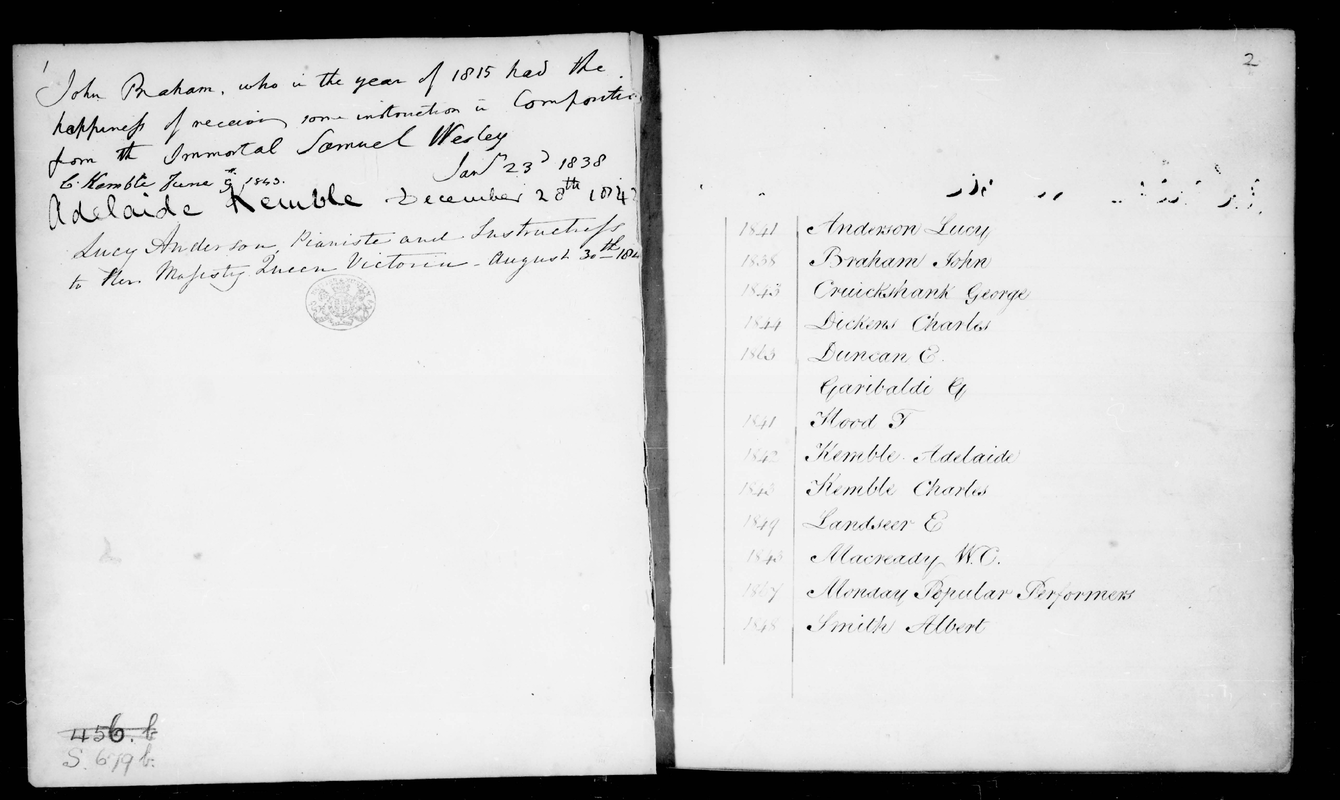 1
John Braham, who in the year of 1815 had the
happiness of receiving some instruction in Compositio
from the Immortal Samuel Wesley
Jany 23d 1838
C. Kemble June 1843.
Adelaide Kemble December 28th 1842
Lucy Anderson, Pianiste and Instructress
to Her Majesty Queen Victoria - August 30th 184
456. b
S. 679 b.
2
1841 Anderson Lucy
1838 Braham John
1843 Cruickshank George
1844 Dickens Charles
1863 Duncan E.
Garibaldi G
1841 Hood T
1842 Kemble Adelaide
1843 Kemble Charles
1849 Landseer E
1843 Macready W.C.
1867 Monday Popular Performers
1848 Smith Albert